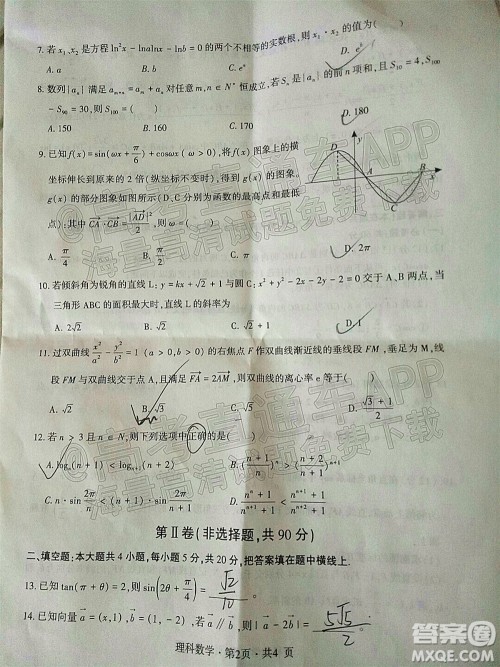 7. 若 x₁、x₂ 是方程 ln²x − lnalnx − lnb = 0 的两个不相等的实数根, 则 x₁ · x₂ 的值为 (    )
A. a    B. b
8. 数列{aₙ}满足 aₘ₊ₙ = aₘ + aₙ 对任意 m, n ∈ N* 恒成立, 若 Sₙ 是{aₙ}的前 n 项和, 且 S₁₀ = 4, S₁₀₀
− S₉₀ = 30, 则 S₁₀₀ = (    )
A. 150    B. 160    C. 170    D. 180
9. 已知 f(x) = sin(ωx + π/6) + cosωx (ω > 0), 将 f(x) 图象上的横
坐标伸长到原来的 2 倍(纵坐标不变)时, 得到 g(x) 的图象.
g(x) 的部分图象如图所示(D、C 分别为函数的最高点和最低
点): 其中 CA · CB = |AD|²/2, 则 ω = (    )
A. π/4    B. π/2    C. π    D. 2π
D
y
x
A
B
C
10. 若倾斜角为锐角的直线 L: y = kx + √2 + 1 与圆 C: x² + y² − 2x − 2y − 2 = 0 交于 A、B 两点, 当
三角形 ABC 的面积最大时, 直线 L 的斜率为
A. 2√2    B.    D. 1
11. 过双曲线 x²/a² − y²/b² = 1 (a > 0, b > 0) 的右焦点 F 作双曲线渐近线的垂线段 FM, 垂足为 M, 线
段 FM 与双曲线交于点 A, 且满足 FA = 2AM, 则双曲线的离心率 e 等于(    )
A. √2    C. √3    D. (√3 + 1)/2
12. 若 n > 3 且 n ∈ N, 则下列选项中正确的是(    )
A. logₙ(n + 1) < logₙ₊₁(n + 2)    B. ((n + 1)/n)ⁿ > ((n + 2)/(n + 1))ⁿ⁺¹
C. n · sin 2π/n < (n + 1) sin 2π/(n + 1)    D. (nⁿ + 1)/(nⁿ⁺¹ + 1) < (nⁿ⁺¹ + 1)/(nⁿ⁺² + 1)
第 Ⅱ 卷 (非选择题, 共 90 分)
二、填空题: 本大题共 4 小题, 每小题 5 分, 共 20 分, 把答案填在题中横线上.
13. 已知 tan(π + θ) = 2, 则 sin(2θ + π/4) = √2/10 。
14. 已知向量 a = (x, 1), b = (1, −2), 若 a ∥ b, 则 |a − 2b| = 5√5/2 。
理科数学 · 第2页 · 共4 页
高考直通车APP
海量高清试题免费下载
高考直通车APP
海量高清试题免费下载
作业帮
zuoyebang.com